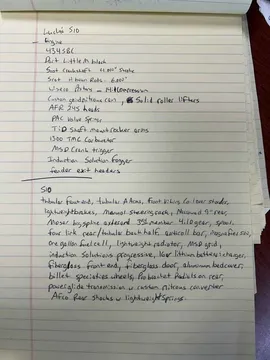 Luchi's S10
Engine
434 SBC
Dart Little M block
Scat Crankshaft 4.00" Stroke
Scat H beam Rods 6.00"
Wiseco Pistons - 14:1 Compression
Custom grind pitman cam, Solid roller lifters
AFR 245 heads
PAC Valve Springs
T&D Shaft mount rocker arms
1300 TMC Carburetor
MSD Crank trigger
Induction Solution Fogger
fender exit headers
S10
tubular front end, tubular A Arms, front Viking Coilover shocks,
lightweight brakes, Manual steering rack, Narrowed 9" rear,
Moser 35 spline axles and 35 member, 4.10 gear, spool,
four link rear, tubular back half, antiroll bar, Magnafuel 500,
one gallon fuel cell, lightweight radiator, MSD grid,
induction Solutions progressive, 16v lithium battery & charger,
fiberglass front end, fiberglass door, aluminum bedcover,
billet specialties wheels, Pro bracket Radials on rear,
powerglide transmission w custom nitrous converter
AFCO Rear Shocks w lightweight Springs.